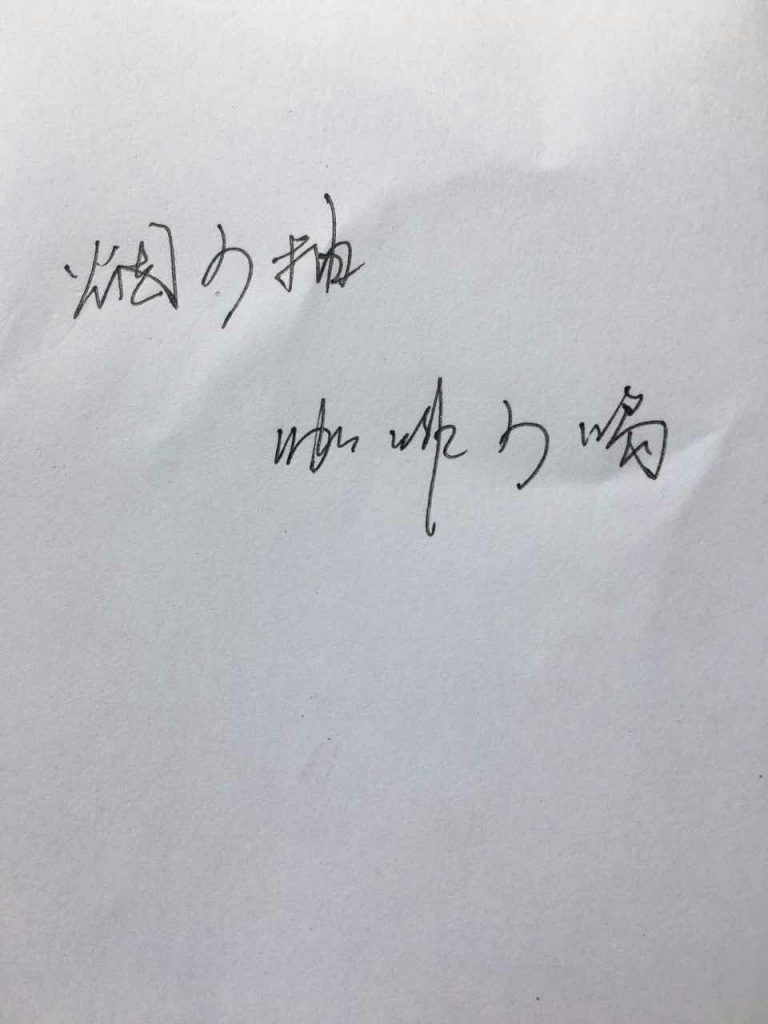 烟少抽
咖啡少喝